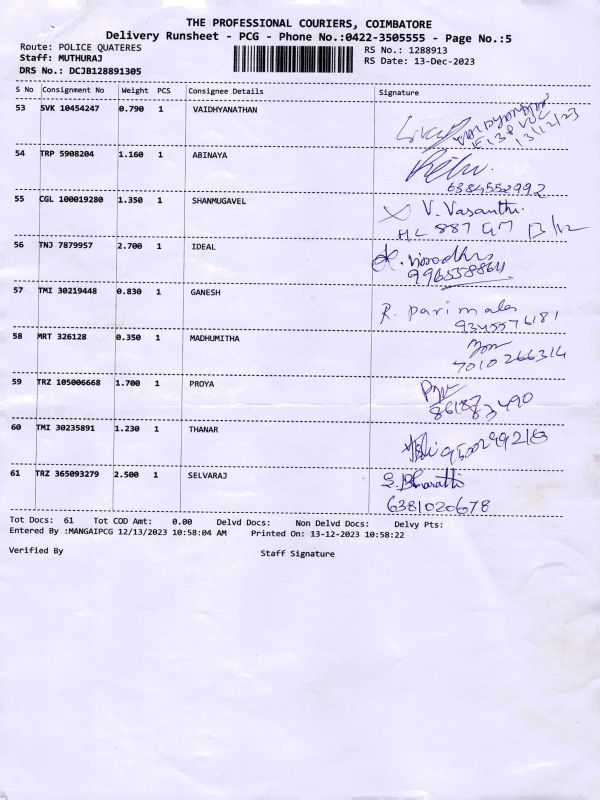 THE PROFESSIONAL COURIERS, COIMBATORE
Delivery Runsheet - PCG - Phone No.:0422-3505555 - Page No.:5
Route: POLICE QUATERES RS No.: 1288913
Staff: MUTHURAJ RS Date: 13-Dec-2023
DRS No.: DCJB128891305
S No Consignment No Weight PCS Consignee Details Signature
53 SVK 10454247 0.790 1 VAIDHYANATHAN
13/12/23
54 TRP 5908204 1.160 1 ABINAYA
6384552992
55 CGL 100019280 1.350 1 SHANMUGAVEL V. Vasanthi
HL 887 13/12
56 TNJ 7879957 2.700 1 IDEAL
57 TMI 30219448 0.830 1 GANESH R. parimala
9345576181
58 MRT 326128 0.350 1 MADHUMITHA
7010266314
59 TRZ 105006668 1.700 1 PROYA
8618783490
60 TMI 30235891 1.230 1 THANAR
61 TRZ 365093279 2.500 1 SELVARAJ S. Bharathi
6381020678
Tot Docs: 61 Tot COD Amt: 0.00 Delvd Docs: Non Delvd Docs: Delvy Pts:
Entered By :MANGAIPCG 12/13/2023 10:58:04 AM Printed On: 13-12-2023 10:58:22
Verified By Staff Signature